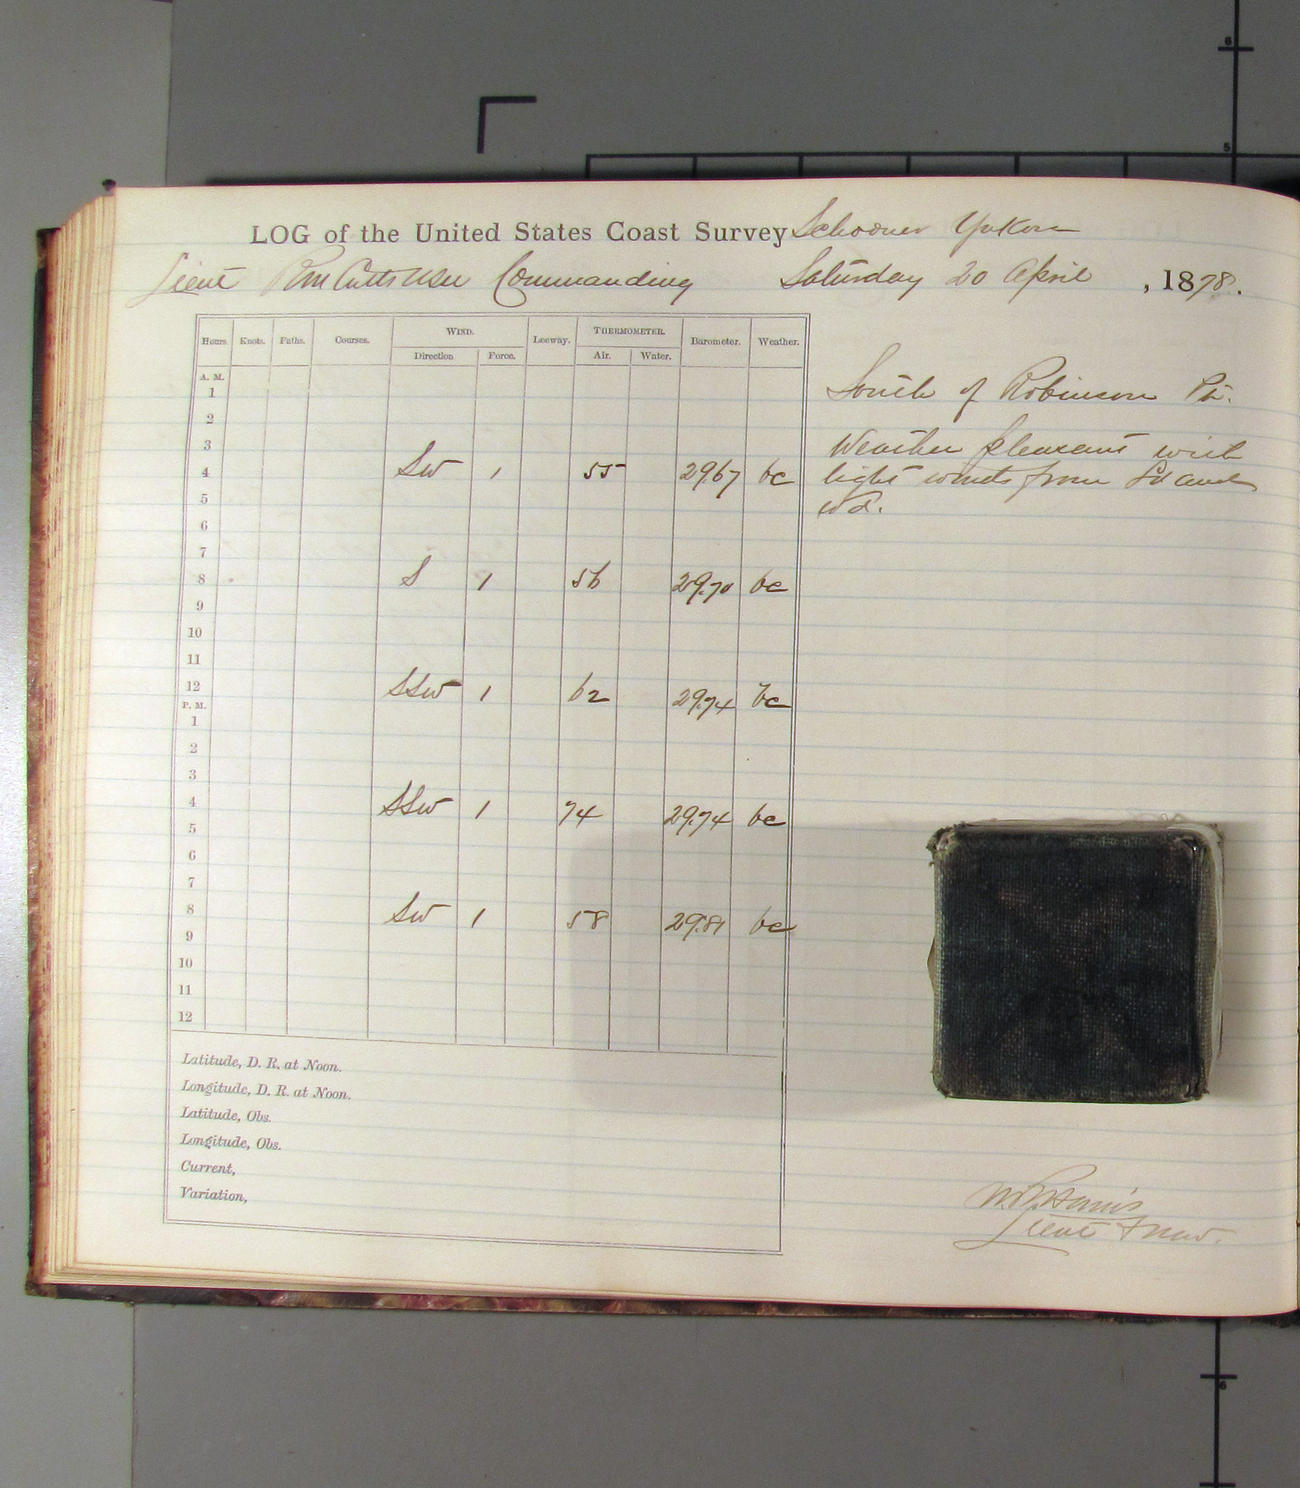 LOG of the United States Coast Survey Schooner Yukon
Lieut R M Cutts USN Commanding Saturday 20 April, 1878.
Hours. Knots. Faths. Courses. WIND. Leeway. THERMOMETER. Barometer. Weather.
Direction. Force. Air. Water.
A. M.
1
2
3
4 SW 1 55 29.67 bc
5
6
7
8 S 1 56 29.70 bc
9
10
11
12 SSW 1 62 29.74 bc
P. M.
1
2
3
4 SSW 1 74 29.74 bc
5
6
7
8 SW 1 58 29.81 bc
9
10
11
12
South of Robinson Pt.
Weather pleasant with
light winds from Sd and
Wd.
Latitude, D. R. at Noon.
Longitude, D. R. at Noon.
Latitude, Obs.
Longitude, Obs.
Current,
Variation,
Lieut
6
5
6